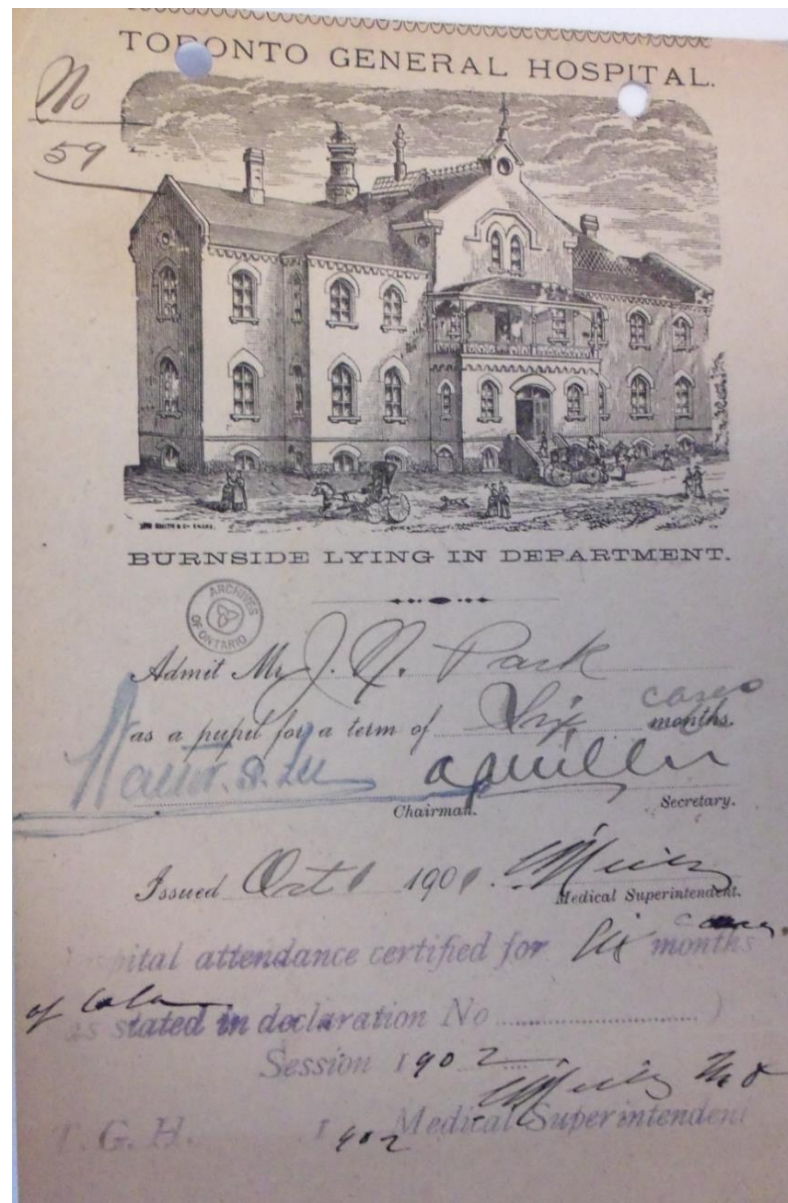 TORONTO GENERAL HOSPITAL.
No
59
BURNSIDE LYING IN DEPARTMENT.
ARCHIVES
OF ONTARIO
Admit Mr J. N. Park
cases
as a pupil for a term of Six months.
Chairman. Secretary.
Issued Oct 1 1901.
Medical Superintendent.
pital attendance certified for six months
as stated in declaration No .......................... )
Session 1902
Medical Superintendent
T. G. H. 1902